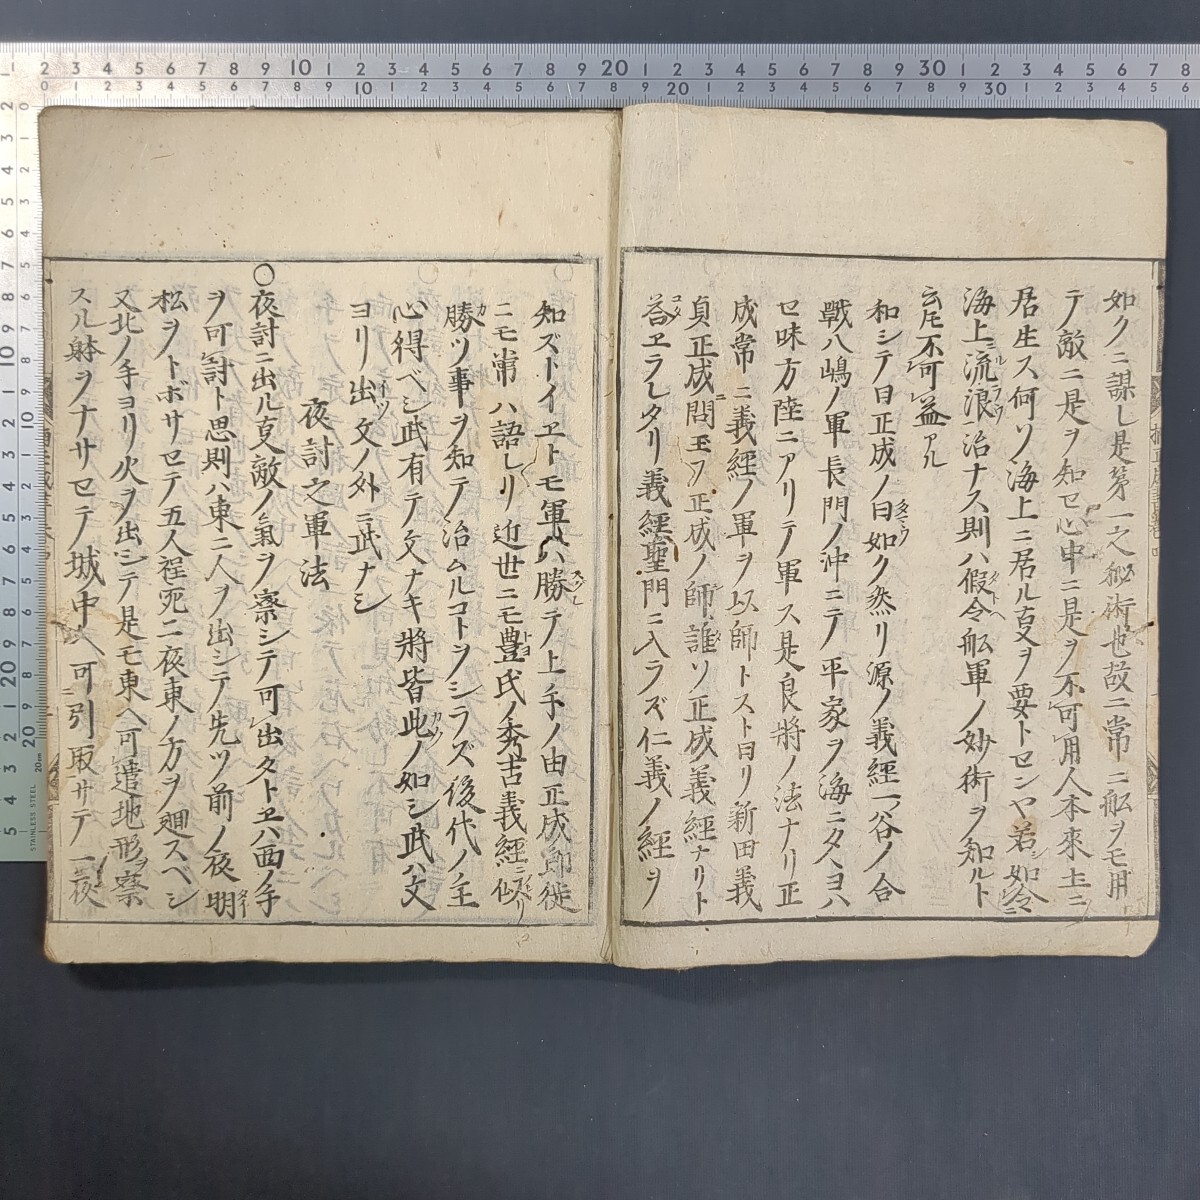 如クニ謀レ是第一之秘術也故ニ常ニ舩ヲモ用
テノ敵ニ是ヲ知セ心中ニ是ヲ不可用人本來土ニ
居生ス何ソ海上ニ居ル㕝ヲ要トセンヤ若如令
海上ニ流浪一治ナス則ハ假令舩軍ノ妙術ヲ知ルト
云㐂不可益アル
和シテ曰正成ノ曰如ク然リ源ノ義經一ノ谷ノ合
戰八嶋ノ軍長門ノ沖ニテノ平家ヲ海ニタヽヨハ
セ味方陸ニアリテ軍ス是良將ノ法ナリ正
成常ニ義經ノ軍ヲ以師トスト曰リ新田義
貞正成ニ問玉フ正成ノ師誰ソ正成義經ナリト
荅エラレタリ義經聖門ニ入ラズ仁義ノ經ヲ
知ズトイヱトモ軍ハ勝テノ上手ノ由正成郎徒
ニモ常ハ語レリ近世ニモ豊氏ノ秀吉義經ニ似リ
勝ツ事ヲ知テ治ムルコトヲシラズ後代ノ主
心得ベシ武有テ文ナキ將皆此ノ如シ武ハ文
ヨリ出ツ文ノ外ニ武ナシ
夜討之軍法
〇夜討ニ出ル㕝敵ノ氣ヲ察シテ可出タトヱハ西ノ手
ヲ可討ト思則ハ東ニ人ヲ出シテ先ツ前ノ夜明
松ヲトボサセテ五人程宛二夜東ノ方ヲ廻スベシ
又北ノ手ヨリ火ヲ出シテ是モ東ヘ可遣地形ヲ察
スル躰ヲナサセテ城中ヘ可引取サテ一夜